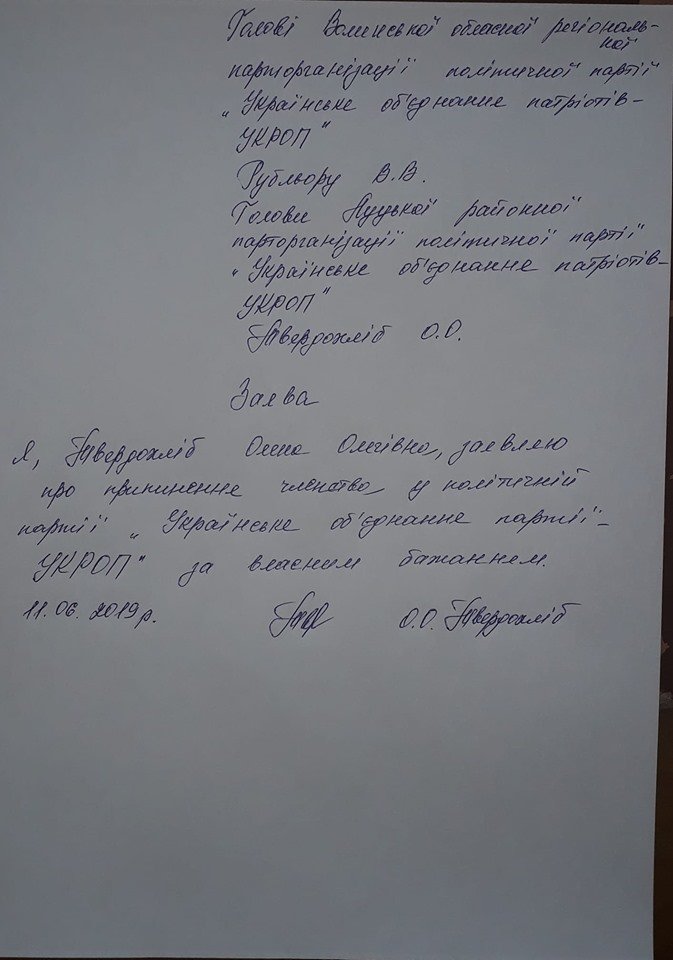 Голові Волинської обласної регіональ-
ної
парторганізації політичної партії
"Українське об'єднання патріотів-
УКРОП"
Рубльору В.В.
Голови Луцької районної
парторганізації політичної партії
"Українське об'єднання патріотів-
УКРОП"
Твердохліб О.О.
Заява
Я, Твердохліб Олена Олегівна, заявляю
про припинення членства у політичній
партії "Українське об'єднання партії-
УКРОП" за власним бажанням.
11.06.2019р. О.О. Твердохліб